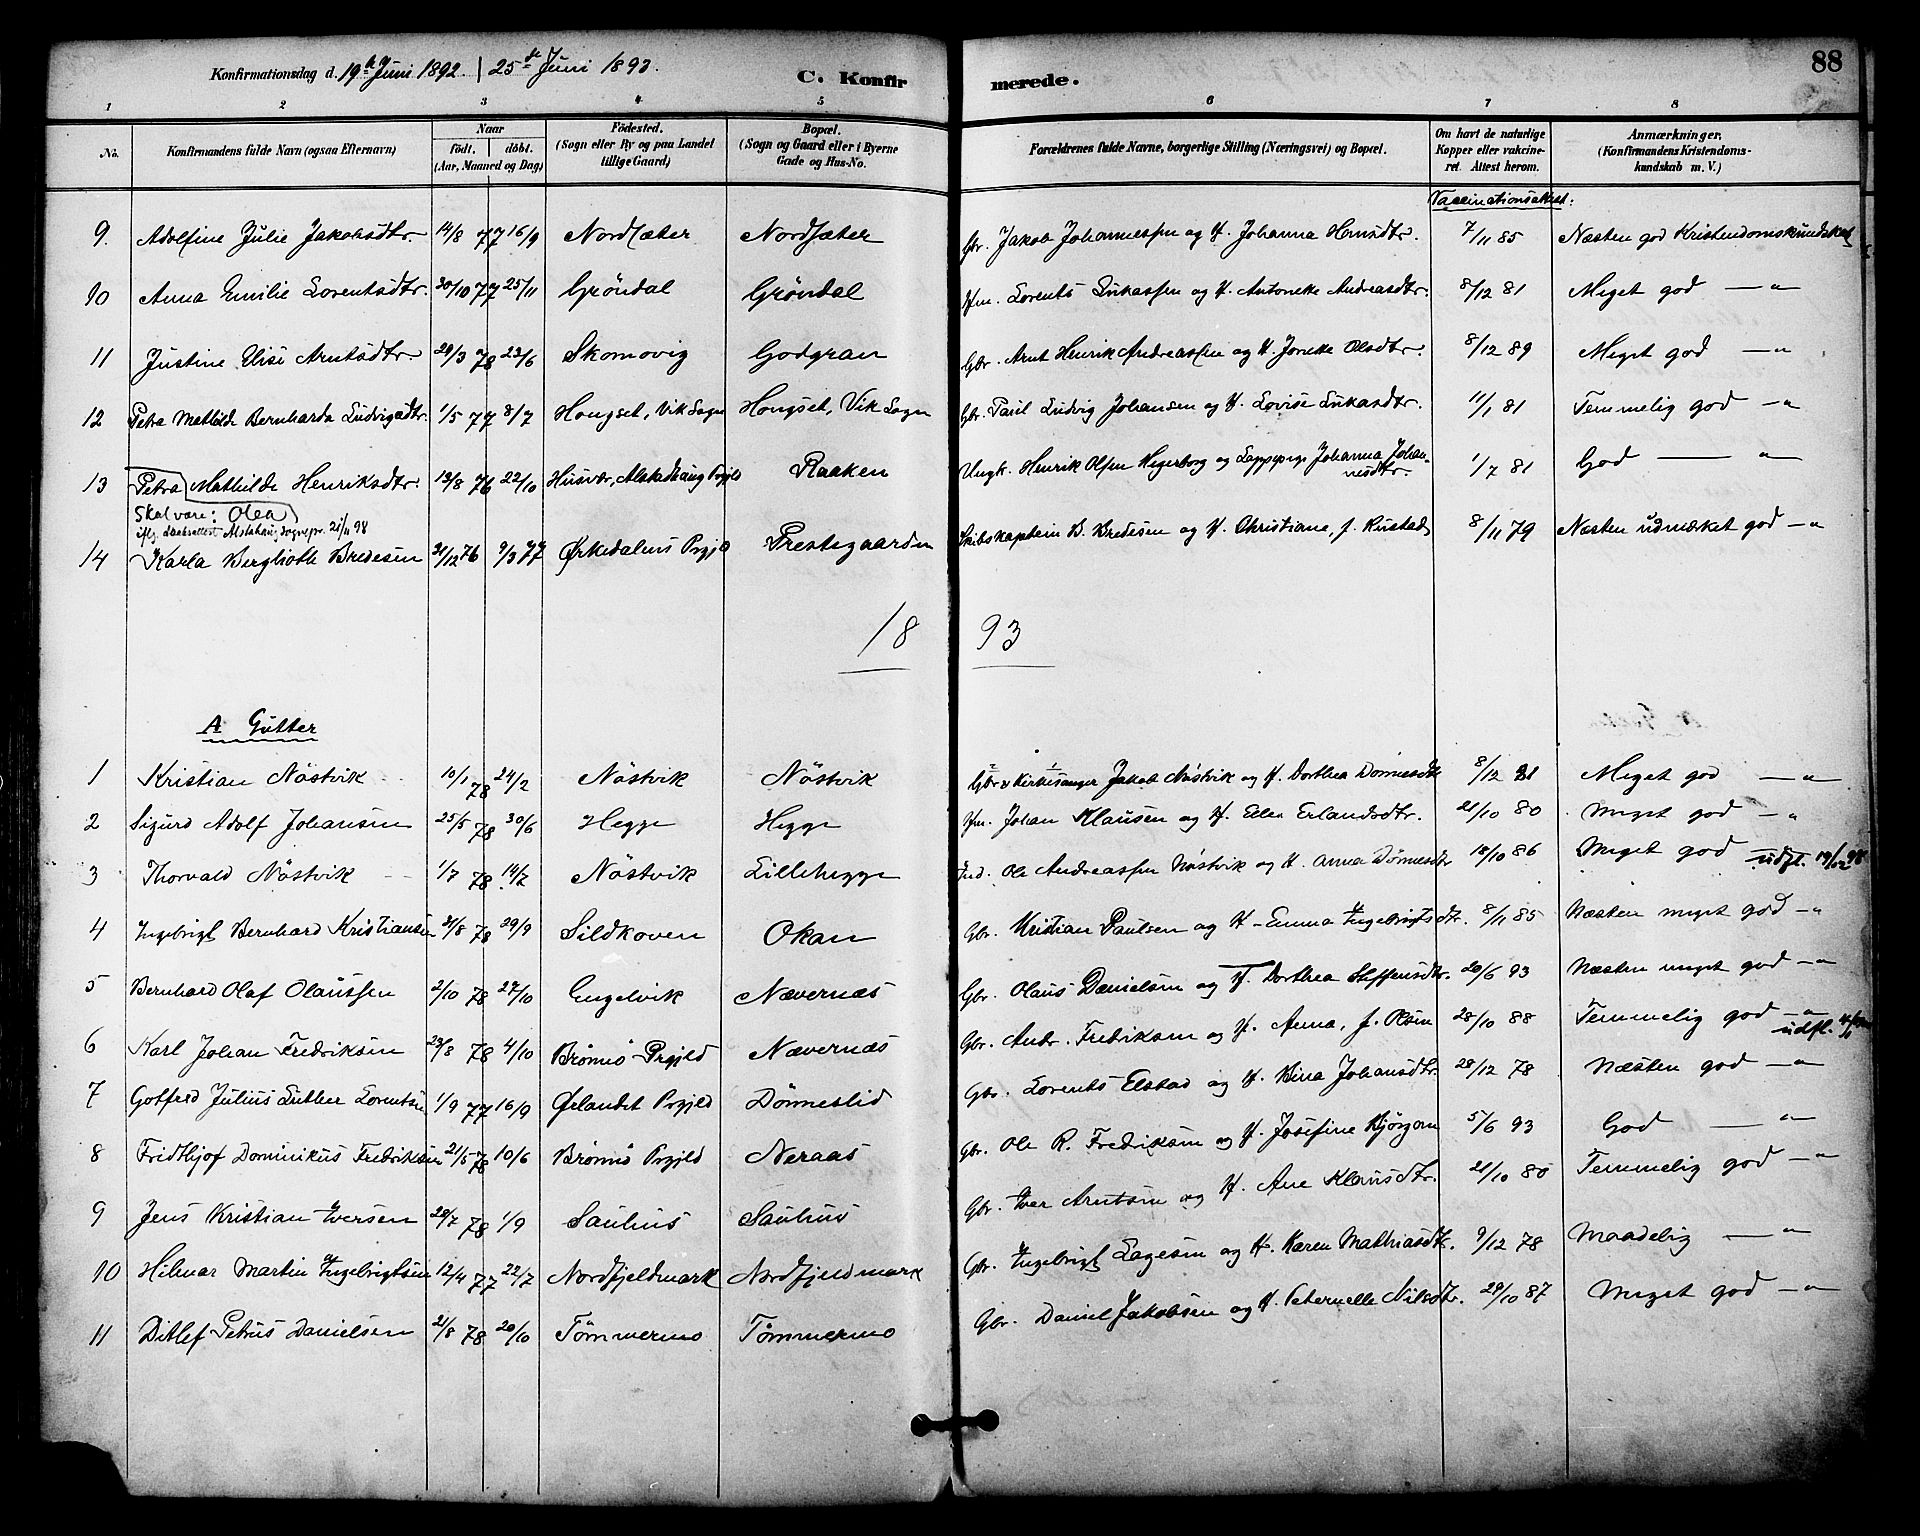 88
Konfirmationsdag d. 19de Juni 1892. | 25de Juni 1893.
C. Konfirmerede.
1 2 3 4 5 6 7 8
No.
Konfirmandens fulde Navn (ogsaa Efternavn)
Naar
födt. döbt.
(Aar, Maaned og Dag)
Födested.
(Sogn eller By og paa Landet
tillige Gaard)
Bopæl.
(Sogn og Gaard eller i Byerne
Gade og Hus-No.
Forældrenes fulde Navne, borgerlige Stilling (Næringsvei) og Bopæl.
Om havt de naturlige
Kopper eller vakcine-
ret. Attest herom.
Anmærkninger.
(Konfirmandens Kristendoms-
kundskab m. V.)
Vaccinationsattest:
9. Adolfine Julie Jakobsdtr. 14/8 77 16/9 Nordsæter Nordsæter Gbr. Jakob Johannessen og H. Johanna Hansdtr. 7/11 85 Næsten god Kristendomskundskab
10 Anna Emilie Lorentsdtr. 30/10 77 25/11 Gröndal Gröndal Hm. Lorents Lukassen og H. Antoneke Andreasdtr. 8/12 81 Meget god — "
11 Justine Elise Arntsdtr 29/3 78 23/6 Skomovig Godgran Gbr. Arnt Henrik Andreassen og H. Joneke Olsdtr. 8/12 89 Meget god — "
12 Petra Mathilde Bernharda Ludvigsdtr. 1/5 77 8/7 Hongset, Vik Sogn Hongset, Vik Sogn Gbr. Paul Ludvig Johansen og H. Lovise Lukasdtr. 11/1 81 Temmelig god — "
13 Petra Mathilde Henriksdtr. 13/8 76 22/10 Husvær, Alstadhaug Prgjld Raaken Ungk. Henrik Olsen Hegerborg og Lappepige Johanna Johan-
nesdtr. 1/7 81 God — "
Skal være: Olea
iflg. daabsattest Alstahaug sognepr. 21/11 98
14 Karla Bergliotte Bredesen 31/12 76 9/3 77 Ørkedalens Prgjld Prestegaarden Skibskaptein B. Bredesen og H. Christiane, f. Rustad 8/11 79 Næsten udmærket god — "
18 93
A Gutter
1 Kristian Nöstvik 10/1 78 24/2 Nöstvik Nöstvik Gbr & Kirkesanger Jakob Nöstvik og H. Dorthea Dönnesdtr 8/12 81 Meget god — "
2 Sigurd Adolf Johansen 25/5 78 30/6 Hegge Hegge Hm. Johan Klausen og H. Ellen Erlandsdtr. 21/10 80 Meget god — "
3 Thorvald Nöstvik 1/7 78 14/7 Nöstvik Lillehegge Ind. Ole Andreassen Nöstvik og H. Anna Dönnesdtr 18/10 86 Meget god udfl. 19/12 98
4 Ingebrigt Bernhard Kristiansen 31/8 78 29/9 Sildkoven Okan Gbr. Kristian Paulsen og H. Emma Ingebrigtsdtr. 8/11 85 Næsten meget god — "
5 Bernhard Olaf Olaussen 2/10 78 27/10 Engelvik Nævernæs Gbr. Olaus Danielsen og H. Dorthea Steffensdtr. 20/6 93 Næsten meget god — "
6 Karl Johan Fredriksen 23/8 78 4/10 Brönnö Prgjld Nævernæs Gbr. Andr. Fredriksen og H. Anna, f. Olsen 28/10 88 Temmelig god — "
udfl.
7 Gotfred Julius Luther Lorentsen 1/9 77 16/9 Ørlandet Prgjld Dönneslid Gbr. Lorents Elstad og H. Bina Johansdtr. 28/12 78 Næsten god — "
8 Fridthjof Dominikus Fredriksen 21/5 78 10/6 Brönnö Prgjld Neraas Gbr. Ole R. Fredriksen og H. Josefine Bjørgan 5/6 93 God — "
9 Jens Kristian Iversen 28/7 78 1/9 Sauhus Sauhus Gbr. Iver Arntsen og H. Ane Klausdtr. 21/10 80 Temmelig god — "
10 Hilmar Martin Ingebrigtsen 12/4 77 22/7 Nordfjeldmark Nordfjeldmark Gbr. Ingebrigt Lagesen og H. Karen Mathiasdtr. 9/12 78 Maadelig — "
11 Ditlef Petrus Danielsen 21/8 78 20/10 Tömmermo Tömmermo Gbr. Daniel Jakobsen og H. Peternelle Nilsdtr. 29/10 87 Meget god — "